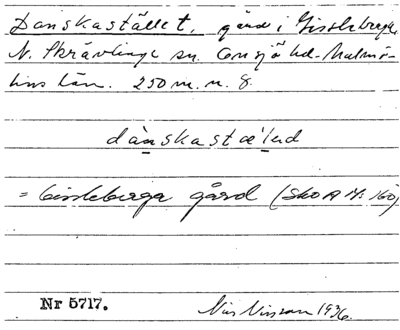 Danskastället, gård i Gissleberga,
N. Skrävlinge sn. Onsjö hd. Malmö-
hus län. 250 m. n. g.
dànskastæ'lud
= Gissleberga gård (Sko A N: 160)
Nr 5717. Nils Nilsson 1936.